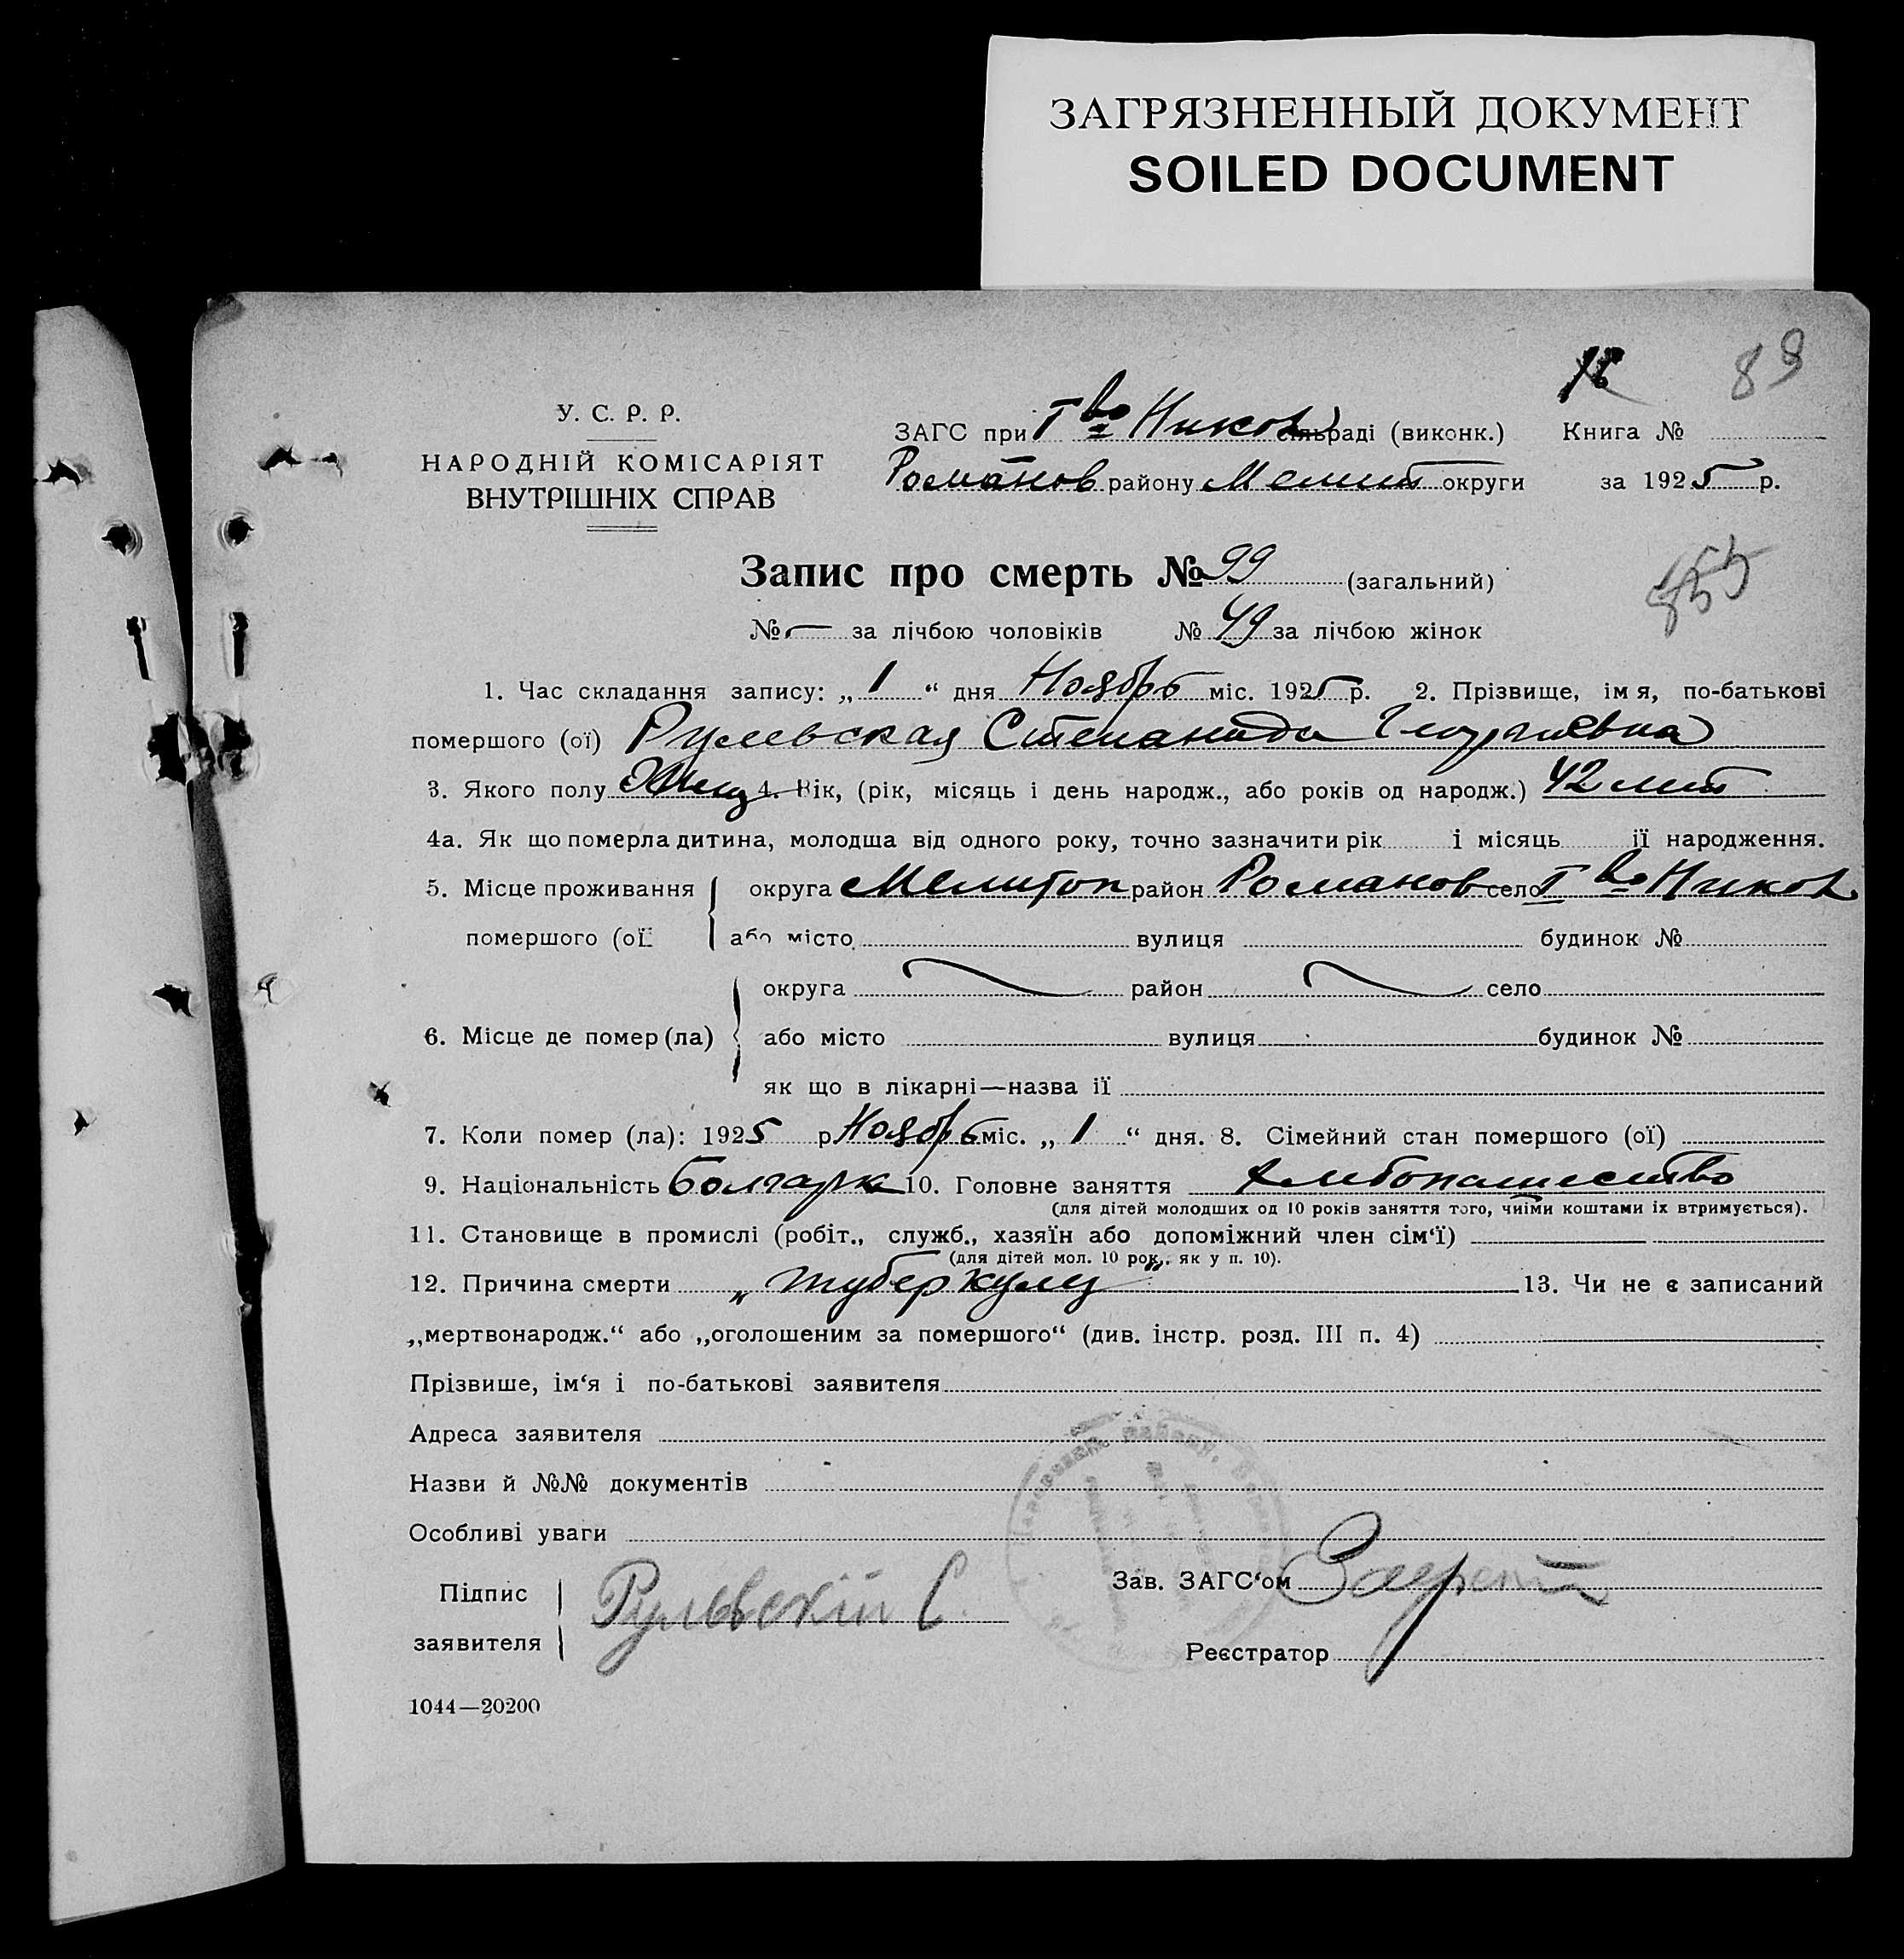 ЗАГРЯЗНЕННЫЙ ДОКУМЕНТ
SOILED DOCUMENT
89
У. С. Р. Р.
НАРОДНІЙ КОМІСАРІЯТ
ВНУТРІШНІХ СПРАВ
ЗАГС при Т во Никол сільраді (виконк.) Книга №
Романов району Мелит округи за 1925 р.
Запис про смерть № 99 (загальний)
855
№ — за лічбою чоловіків № 49 за лічбою жінок
1. Час складання запису: „ 1 “ дня Ноябрь міс. 1925 р. 2. Прізвище, імя, по-батькові
помершого (ої) Рулевская Степанида Георгиевна
3. Якого полу Женщ 4. Вік, (рік, місяць і день народж., або років од народж.) 42 лет
4а. Як що померла дитина, молодша від одного року, точно зазначити рік і місяць її народження.
5. Місце проживання округа Мелитоп район Романов село Т во Никол
помершого (ої або місто вулиця будинок №
округа район село
6. Місце де помер (ла) або місто вулиця будинок №
як що в лікарні—назва її
7. Коли помер (ла): 1925 р Ноябрь міс. „ 1 “ дня. 8. Сімейний стан помершого (ої)
9. Національність болгарка 10. Головне заняття хлебопашество
(для дітей молодших од 10 років заняття того, чиїми коштами їх втримується).
11. Становище в промислі (робіт., служб., хазяїн або допоміжний член сім‘ї)
(для дітей мол. 10 рок., як у п. 10).
12. Причина смерти „ туберкулез “ 13. Чи не є записаний
„мертвонародж.“ або „оголошеним за помершого“ (див. інстр. розд. III п. 4)
Прізвише, ім‘я і по-батькові заявителя
Адреса заявителя
Назви й №№ документів
Особливі уваги
Підпис
заявителя Рулевскій С.
Зав. ЗАГС‘ом
Реєстратор
1044—20200